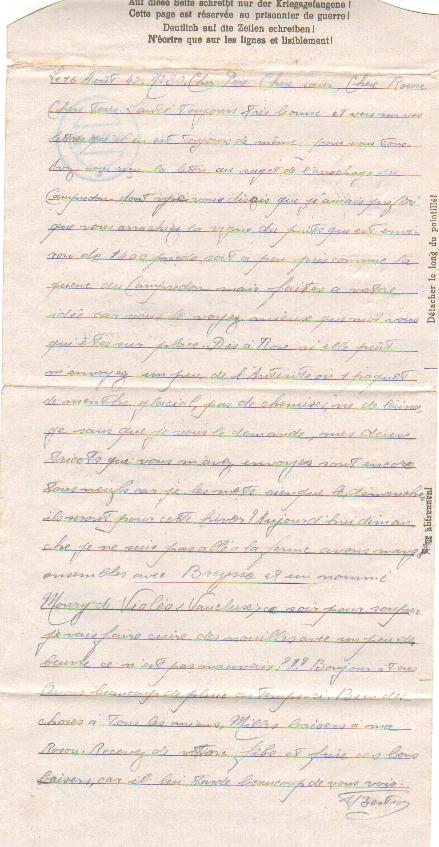 Auf diese Seite schreibt nur der Kriegsgefangene!
Cette page est réservée au prisonnier de guerre!
Deutlich auf die Zeilen schreiben!
N'écrire que sur les lignes et lisiblement!
Le 16 Août 42. Cher Père Chère sœur Chère Rosou
Chers Tous. Santé toujours très bonne et vers sur vos
lettres que il en est toujours de même pour vous tous
Avez vous reçu la lettre au sujet de l'arrachage du
Campredon dont je vous disais que j'aimais préféré
que vous arrachiez la vigne du puits qui est envi-
ron de 1400 pieds soit a peu près comme la
queue du Campredon mais faites a votre
idée car vous le voyez mieux que moi vous
qui êtes sur place. Dis a Rose si elle peut
m'envoyez un peu de l'Antésite ou 1 paquet
de menthe glacial, pas de chemise, ne de laina
ge sans que je vous le demande, mes deux
tricots que vous m'avez envoyés sont encore
tous neufs car je les mets que le dimanche
ils seront pour cette hiver? Aujourd'hui diman
che je ne suis pas allé a la ferme avons mangé
ensembles avec et un nommé
Moury de Violès (Vaucluse) ce soir pour souper
je vais faire cuire des nouilles avec un peu de
beurre ce n'est pas mauvais??? Bonjour a Tous
Avons beaucoup de pluie ces Temps-ci Bien des
choses à Tous les amis, Milles baisers à ma
Rosou. Recevez de votre fils et frère ces bons
baisers, car il lui tarde beaucoup de vous voir.
Détacher le long du pointillé!
Hier abtrennen!